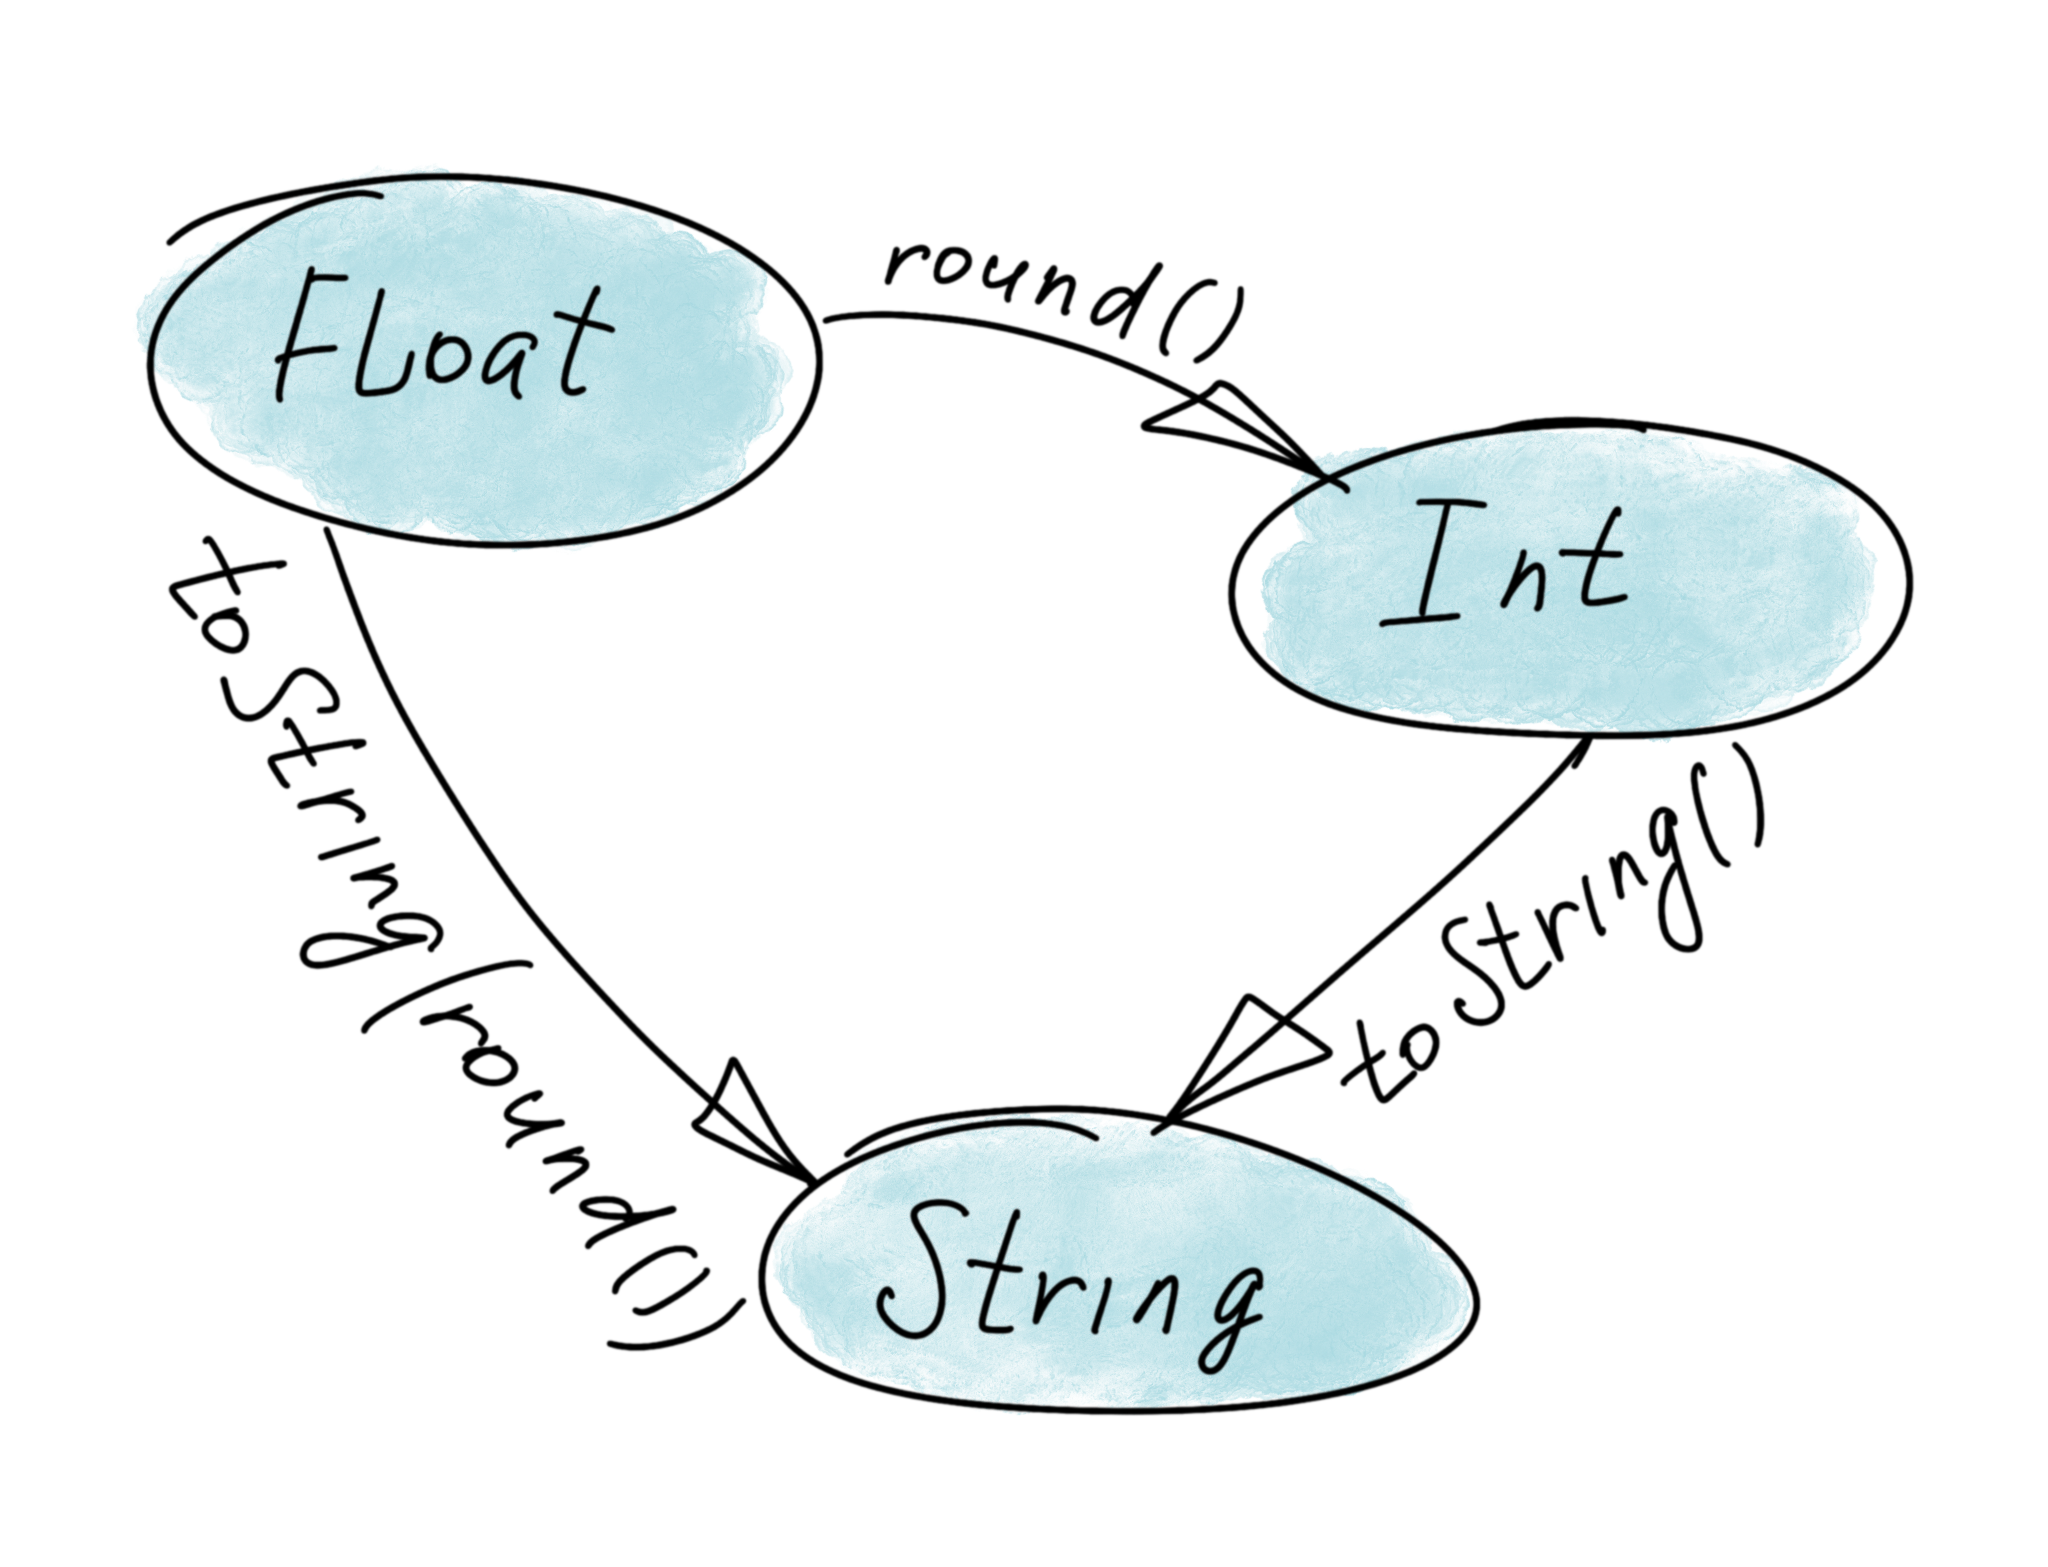 Float
round()
Int
toString(round())
toString()
String